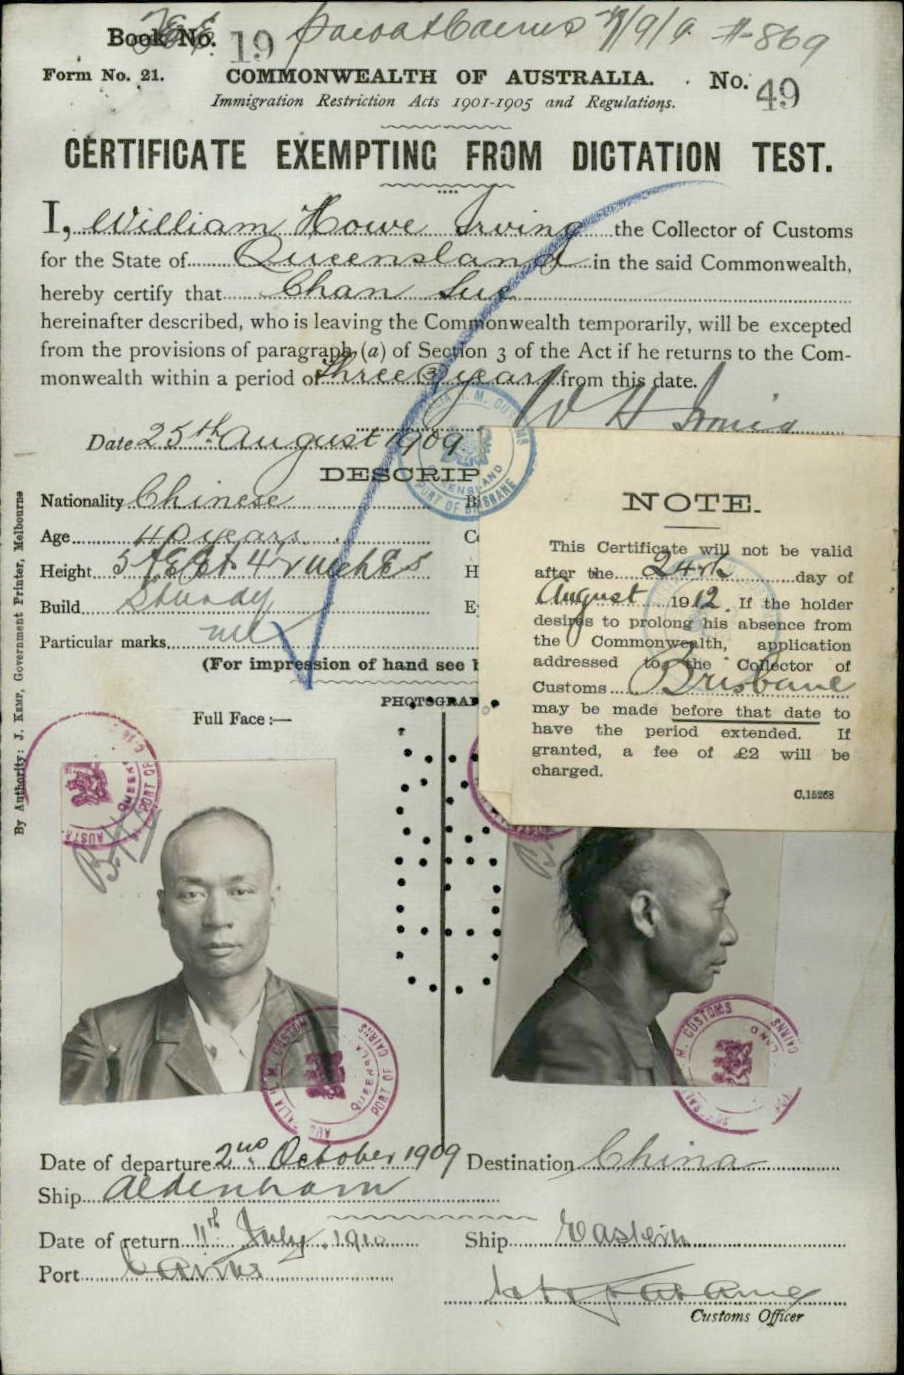 Book No. 19 7/9/9 #869
Form No. 21. COMMONWEALTH OF AUSTRALIA. No. 49
Immigration Restriction Acts 1901-1905 and Regulations.
CERTIFICATE EXEMPTING FROM DICTATION TEST.
I, William Howe Irving the Collector of Customs
for the State of Queensland in the said Commonwealth,
hereby certify that Chan Sue
hereinafter described, who is leaving the Commonwealth temporarily, will be excepted
from the provisions of paragraph (a) of Section 3 of the Act if he returns to the Com-
monwealth within a period of Three (3) years from this date.
W H Irving
Date 25th August 1909.
DESCRIP
Nationality Chinese
Age 40 years
Height 5 feet 4½ inches
Build Sturdy
Particular marks nil
(For impression of hand see b
PHOTOGRAP
Full Face:—
By Authority: J. KEMP, Government Printer, Melbourne
NOTE.
This Certificate will not be valid
after the 24th day of
August 1912. If the holder
desires to prolong his absence from
the Commonwealth, application
addressed to the Collector of
Customs Brisbane
may be made before that date to
have the period extended. If
granted, a fee of £2 will be
charged.
C.15268
PORT OF BRISBANE
QUEENSLAND
H. M. CUSTOMS
PORT OF CAIRNS
Date of departure 2nd October 1909 Destination China
Ship Aldenham
Date of return 11th July 1910 Ship Eastern
Port Cairns
Customs Officer